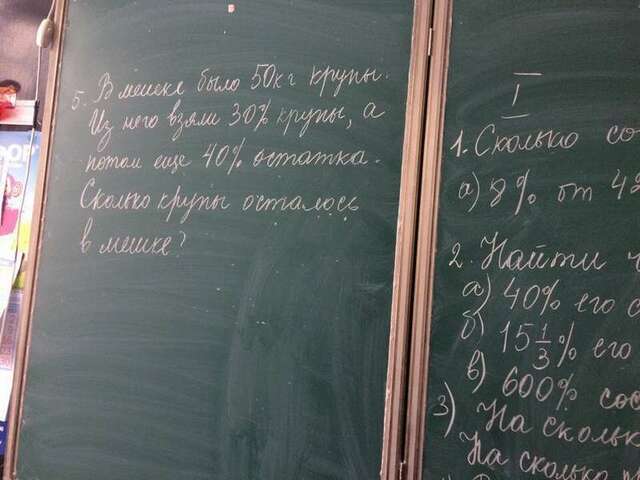 5. В мешке было 50кг крупы.
Из него взяли 30% крупы, а
потом еще 40% остатка.
Сколько крупы осталось
в мешке?
I
1. Сколько со
а) 8% от 4
2. Найти ч
а) 40% его
б) 15 1/3 % его
в) 600% сос
3) На скольк
На сколько